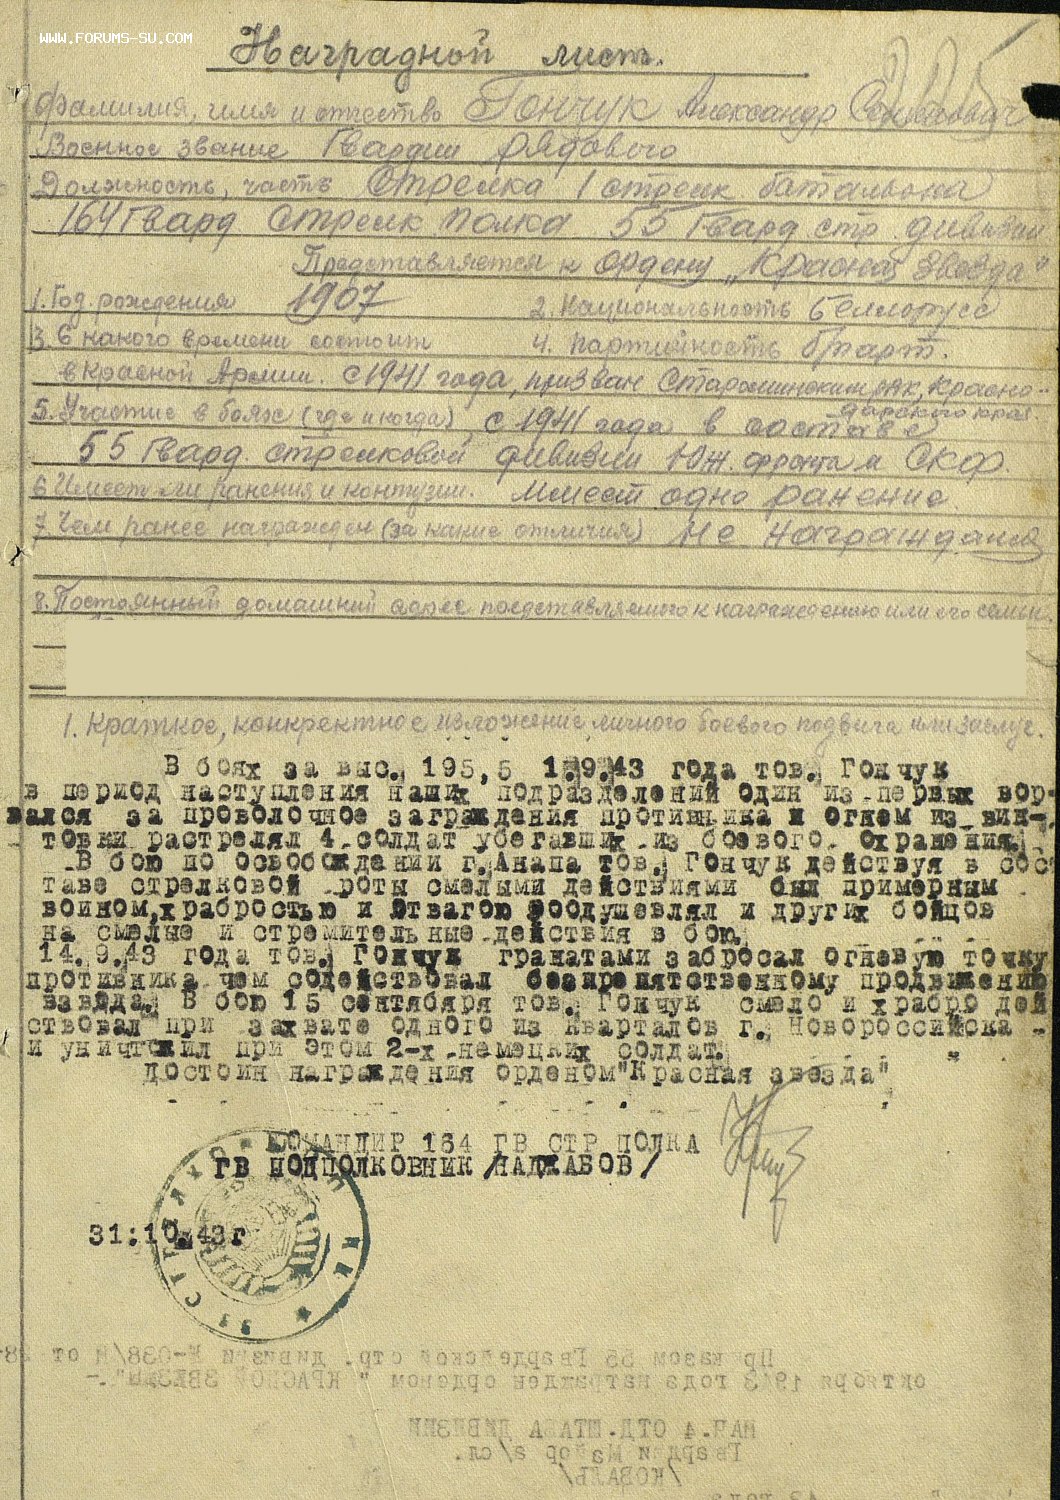 WWW.FORUMS-SU.COM
Наградной лист.
Фамилия, имя и отчество Гончук Александр
Военное звание Гвардии рядового
Должность, часть Стрелка 1 стрелк батальона
164 Гвард Стрелк полка 55 Гвард стр дивизии
Представляется к ордену „Красная звезда"
1. Год рождения 1907 2. Национальность Беллорусс
3. С какого времени состоит 4. партийность б/парт.
в Красной Армии. с 1941 года, призван Староминским рвк, Красно-
дарского края
5. Участие в боях (где и когда) с 1941 года в составе
55 Гвард. стрелковой дивизии Юж. фронта и СКФ.
6 Имеет ли ранения и контузии. Имеет одно ранение.
7. Чем ранее награжден (за какие отличия) Не награждался
8. Постоянный домашний адрес представляемого к награждению или его семьи.
1. Краткое, конкректное изложение личного боевого подвига или заслуг.
В боях за выс. 195,5 1.9.43 года тов. Гончук
в период наступления наших подразделений один из первых вор-
вался за проволочное заграждения противника и огнем из вин-
товки растрелял 4 солдат убегавших из боевого охранения.
В бою по освобождении г. Анапа тов. Гончук действуя в сос
таве стрелковой роты смелыми действиями был примерным
воином, храбростью и отвагою воодушевлял и других бойцов
на смелые и стремительные действия в бою.
14.9.43 года тов. Гончук гранатами забросал огневую точку
противника чем содействовал безпрепятственному продвижению
взвода. В бою 15 сентября тов. Гончук смело и храбро дей
ствовал при захвате одного из кварталов г. Новороссийска
и уничтожил при этом 2-х немецких солдат.
Достоин награждения орденом "Красная звезда"
КОМАНДИР 164 ГВ СТР ПОЛКА
ГВ ПОДПОЛКОВНИК /НАДЖАБОВ/
31:10.43г
Приказом 55 Гвардейской стр. дивизии № 038/Н от 28-
октября 1943 года награжден орденом " КРАСНОЙ ЗВЕЗДЫ".-
НАЧ.4 ОТД.ШТАБА ДИВИЗИИ
Гвардии Майор а/сл.
/КОВАЛЬ/